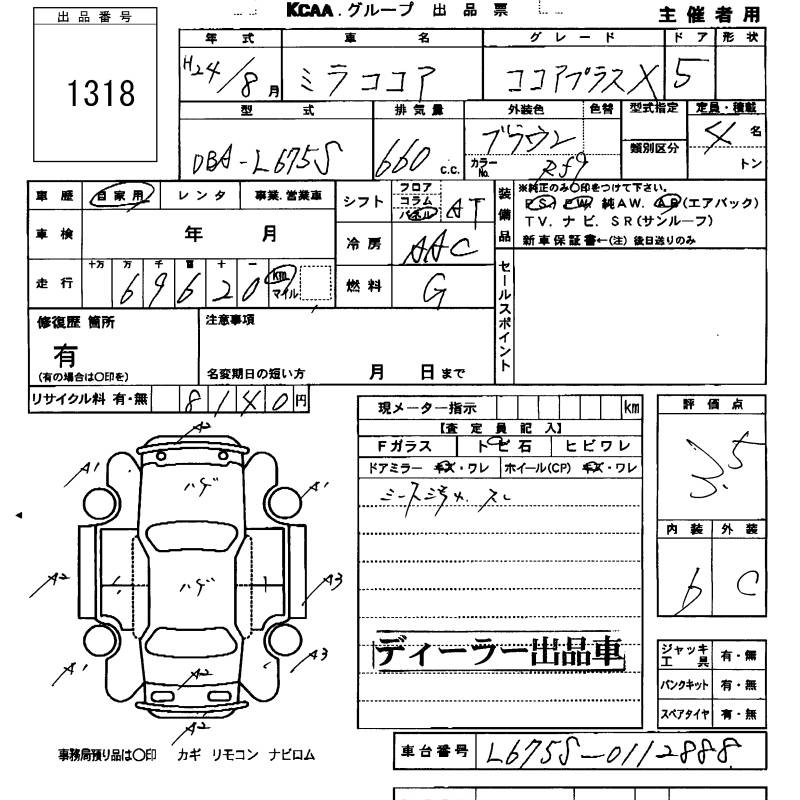 KCAA.グループ 出品票
主催者用
出品番号
1318
年式 車名 グレード ドア 形状
H24/8月 ミラココア ココアプラスX 5
型式 排気量 外装色 色替 型式指定 定員・積載
DBA-L675S 660 c.c. ブラウン 類別区分 4名
カラーNo. R59 トン
車歴 自家用 レンタ 事業.営業車
シフト フロア コラム パネル AT
装備品
※純正のみ〇印をつけて下さい。
P.S. P.W. 純AW. AB(エアバック)
TV. ナビ. SR(サンルーフ)
新車保証書←(注) 後日送りのみ
車検 年 月
冷房 AAC
走行 十万 万 千 百 十 一
69620 km マイル
燃料 G
セールスポイント
修復歴 箇所
有
(有の場合は〇印を)
注意事項
名変期日の短い方 月 日まで
リサイクル料 有・無 8140円
現メーター指示 km
【査定員記入】
Fガラス トビ石 ヒビワレ
ドアミラー キズ・ワレ ホイール(CP) キズ・ワレ
シート汚れ. スレ
評価点
3.5
内装 外装
6 C
A2
A1 ハゲ A1
A2 ハゲ A3
A1 A2 A3
A2
ディーラー出品車
ジャッキ工具 有・無
パンクキット 有・無
スペアタイヤ 有・無
事務局預り品は〇印 カギ リモコン ナビロム
車台番号 L675S-0112888